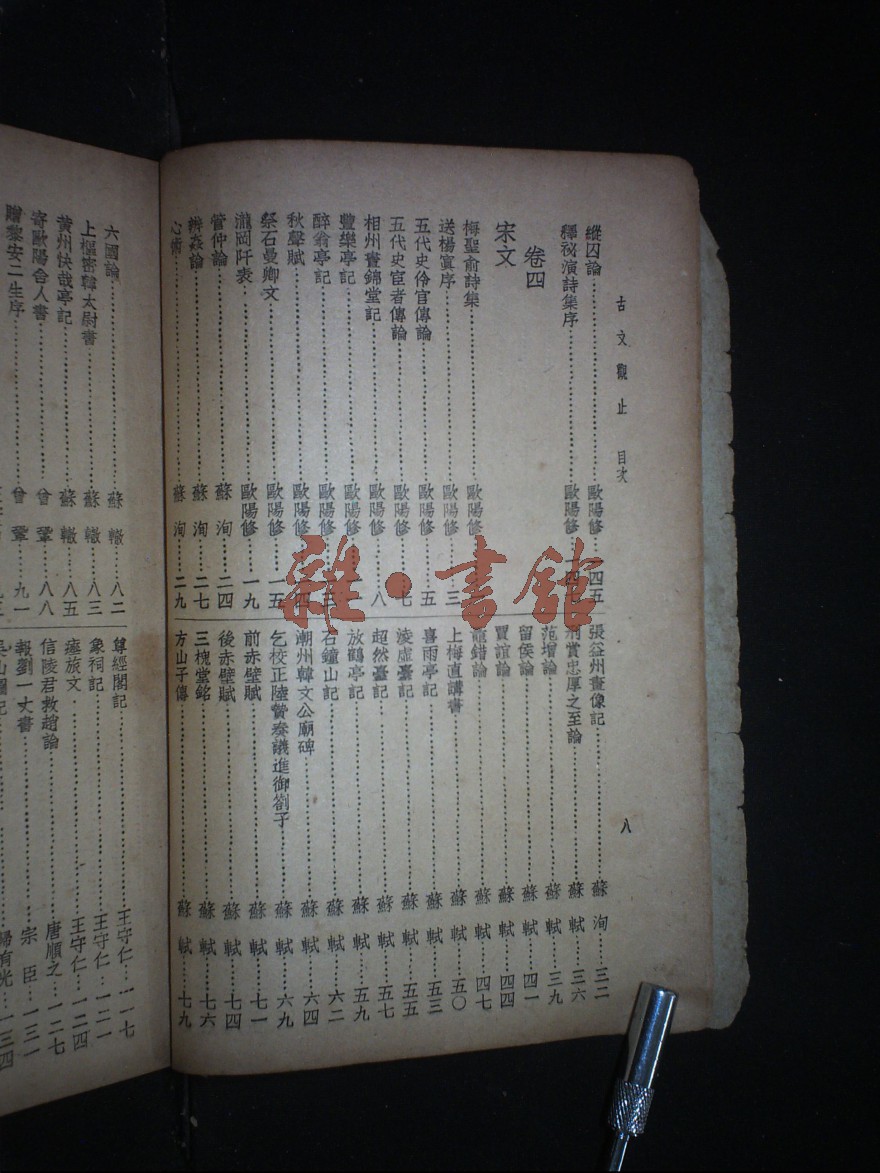 古文觀止 目次
八
縱囚論 歐陽修 一四五
釋祕演詩集序 歐陽修 一四七
卷四
宋文
梅聖俞詩集 歐陽修
送楊寘序 歐陽修 三
五代史伶官傳論 歐陽修 五
五代史宦者傳論 歐陽修 七
相州晝錦堂記 歐陽修 八
豐樂亭記 歐陽修
醉翁亭記 歐陽修
秋聲賦 歐陽修
祭石曼卿文 歐陽修 一五
瀧岡阡表 歐陽修 一九
管仲論 蘇洵 二四
辨姦論 蘇洵 二七
心術 蘇洵 二九
張益州畫像記 蘇洵 三二
刑賞忠厚之至論 蘇軾 三六
范增論 蘇軾 三九
留侯論 蘇軾 四一
賈誼論 蘇軾 四四
鼂錯論 蘇軾 四七
上梅直講書 蘇軾 五〇
喜雨亭記 蘇軾 五三
淩虛臺記 蘇軾 五五
超然臺記 蘇軾 五七
放鶴亭記 蘇軾 五九
石鐘山記 蘇軾 六二
潮州韓文公廟碑 蘇軾 六四
乞校正陸贄奏議進御劄子 蘇軾 六九
前赤壁賦 蘇軾 七一
後赤壁賦 蘇軾 七四
三槐堂銘 蘇軾 七六
方山子傳 蘇軾 七九
六國論 蘇轍 八二
上樞密韓太尉書 蘇轍 八三
黃州快哉亭記 蘇轍 八五
寄歐陽舍人書 曾鞏 八八
贈黎安二生序 曾鞏 九一
尊經閣記 王守仁 一一七
象祠記 王守仁 一二一
瘞旅文 王守仁 一二四
信陵君救趙論 唐順之 一二七
報劉一丈書 宗臣 一三一
吳山圖記 歸有光 一三四
雜·書館